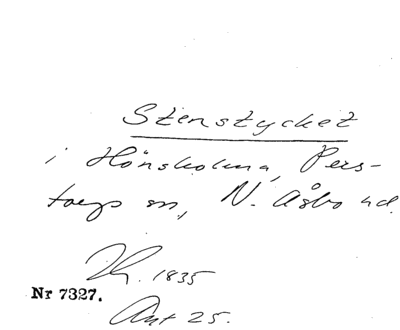 Stenstycket
i Hönsholma, Pers-
torps sn, N. Åsbo hd.
Th. 1835
Nr 7327.
Ant 25.